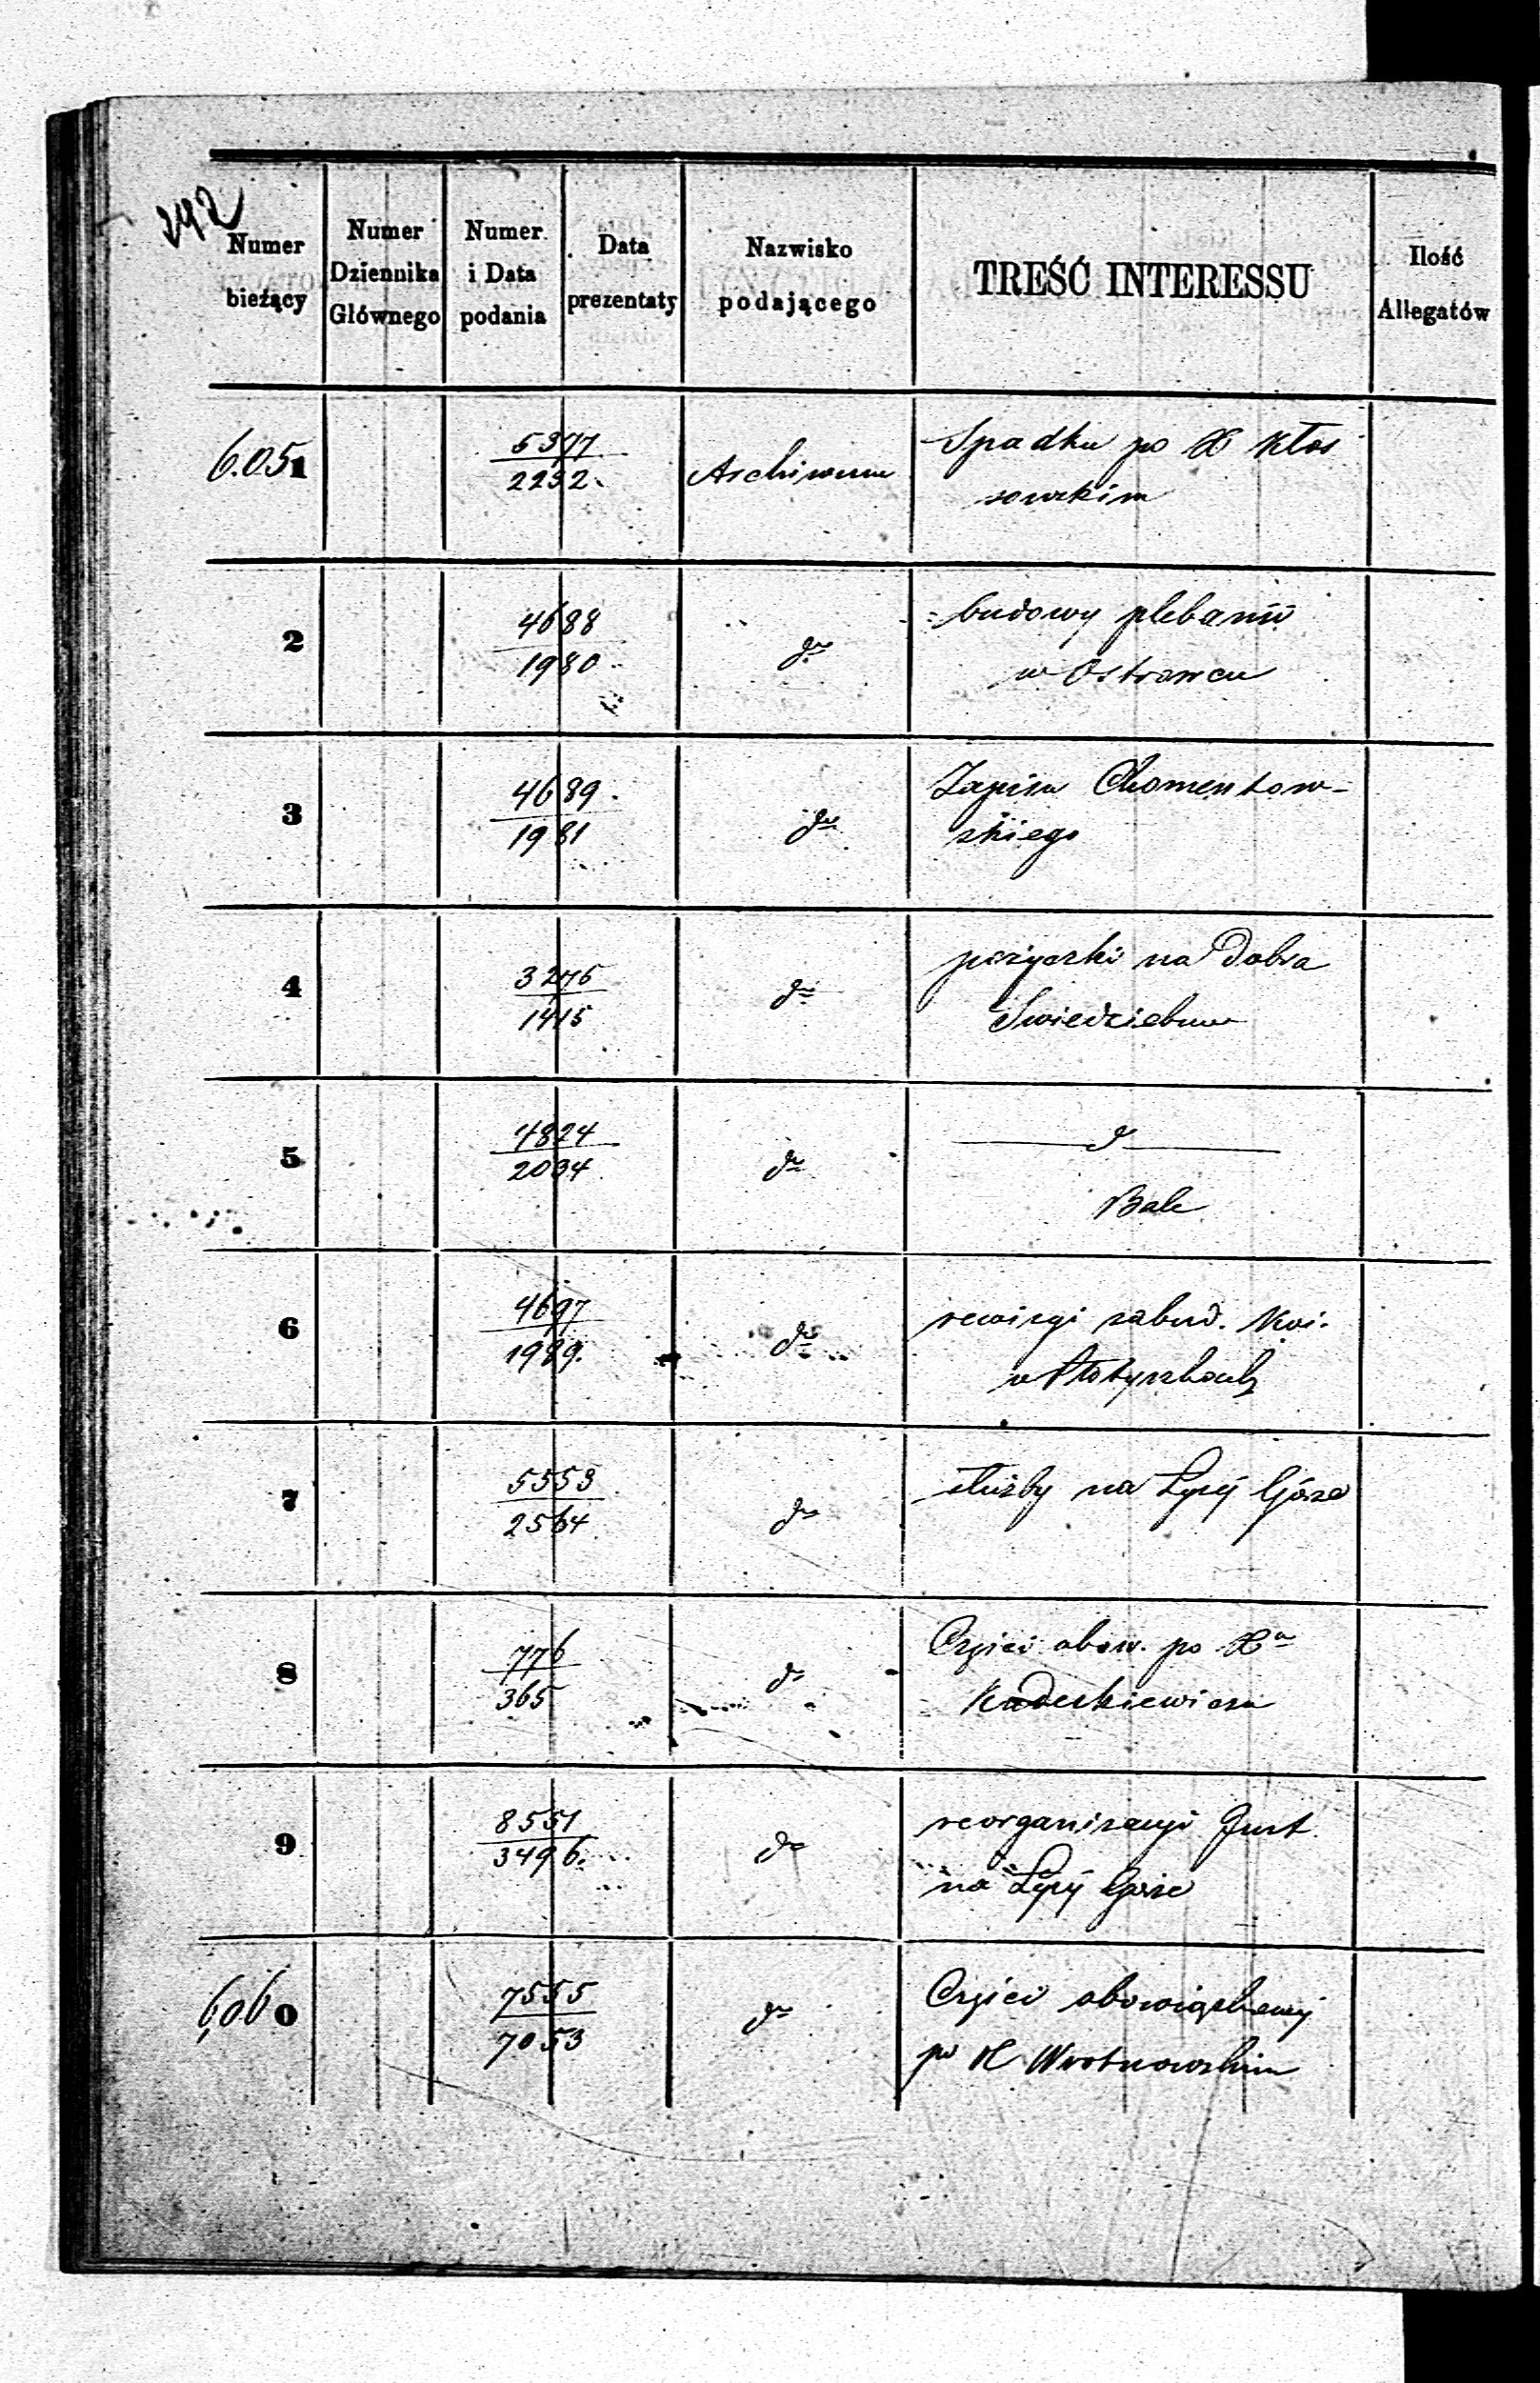 292
Numer bieżący
Numer Dziennika Głównego
Numer i Data podania
Data prezentaty
Nazwisko podającego
TREŚĆ INTERESSU
Ilość Allegatów
6.051
5377
2232
Archiwum
Spadku po X Kłos
sowskim
2
4688
1980
do
budowy plebanii
w Ostrowcu
3
4689
1981
do
Zapisu Chomentow-
skiego
4
3276
1415
do
pożyczki na Dobra
5
4824
2034
do
d
Bale
6
4697
1989.
do
rewizyi zabud.
w
7
5553
2564
do
służby na Łysej Górze
8
776
365
do
Części obow. po X
9
8551
3496.
do
reorganizacyi Inst.
na Łysej Górze
6,060
7555
7053
do
Części obowiązkowej
po X Wrotnowskim